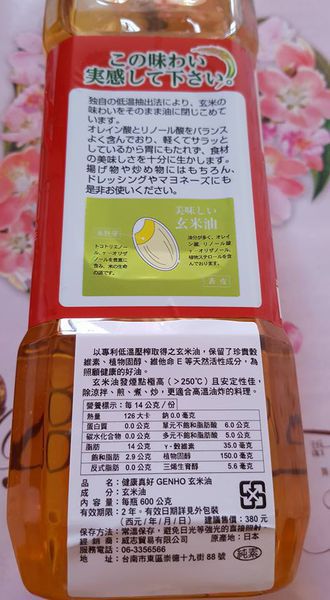 この味わい
実感して下さい。
独自の低温抽出法により、玄米の
味わいをそのまま油に閉じこめて
います。
オレイン酸とリノール酸をバランス
よく含んでおり、軽くてサラッと
しているから胃にもたれず、食材
の美味しさを十分に生かします。
揚げ物や炒め物にはもちろん、
ドレッシングやマヨネーズにも
是非お使いください。
美味しい
玄米油
トコトリエノー
ル、γ-オリザ
ノールを豊富に
含み、米の生命
の源です。
油分が多く、オレイ
ン酸、リノール酸
γ-オリザノール、
植物ステロールを含
んでおります。
以專利低溫壓榨取得之玄米油，保留了珍貴穀
維素、植物固醇、維他命 E 等天然活性成分，為
照顧健康的好油。
玄米油發煙點極高（>250℃）且安定性佳，
除涼拌、煎、煮、炒，更適合高溫油炸的料理。
營養標示：每 14 公克／份
熱量 126 大卡 鈉 0.0 毫克
蛋白質 0.0 公克 單元不飽和脂肪酸 6.0 公克
碳水化合物 0.0 公克 多元不飽和脂肪酸 5.0 公克
脂肪 14 公克 γ-穀維素 35.0 毫克
飽和脂肪 2.9 公克 植物固醇 150.0 毫克
反式脂肪 0.0 公克 三烯生育醇 5.6 毫克
品名：健康真好 GENHO 玄米油
成分：玄米油
內容量：每瓶 600 公克
有效期限：2 年。有效日期詳見外包裝
（西元／年／月／日） 建議售價：380 元
保存方法：常溫保存，避免日光等強光的直接照射
經銷商：威志貿易有限公司 原產地：日本
服務電話：06-3356566
地址：台南市東區崇德十九街 88 號
純素